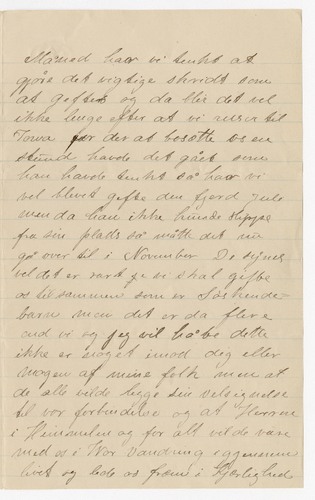 Maned har vi tenkt at
gjøre det vigtige skridt som
at giftes og da blir det vel
ikke lenge efter at vi reiser til
Iowa for der at besøtte os en
stund havde det gået som
han havde tenkt så har vi
vel blevet gifte den fjord Jule
men da han ikke kunde slippe
fra sin plads så måtte det nu
gå over til i November De synes
vel det er rart at vi skal gifte
os til sammen som er Søskende-
barn men det er da flere
end vi og jeg vil håbe dette
ikke er noget imod deg eller
nogen af mine folk men at
de alle vilde legge sin velsignelse
til vor forbindelse og at Herren
i Himmelen og for alt vilde være
med os i vor Vandring igjennem
livet og lede os frem i Kjærlighed